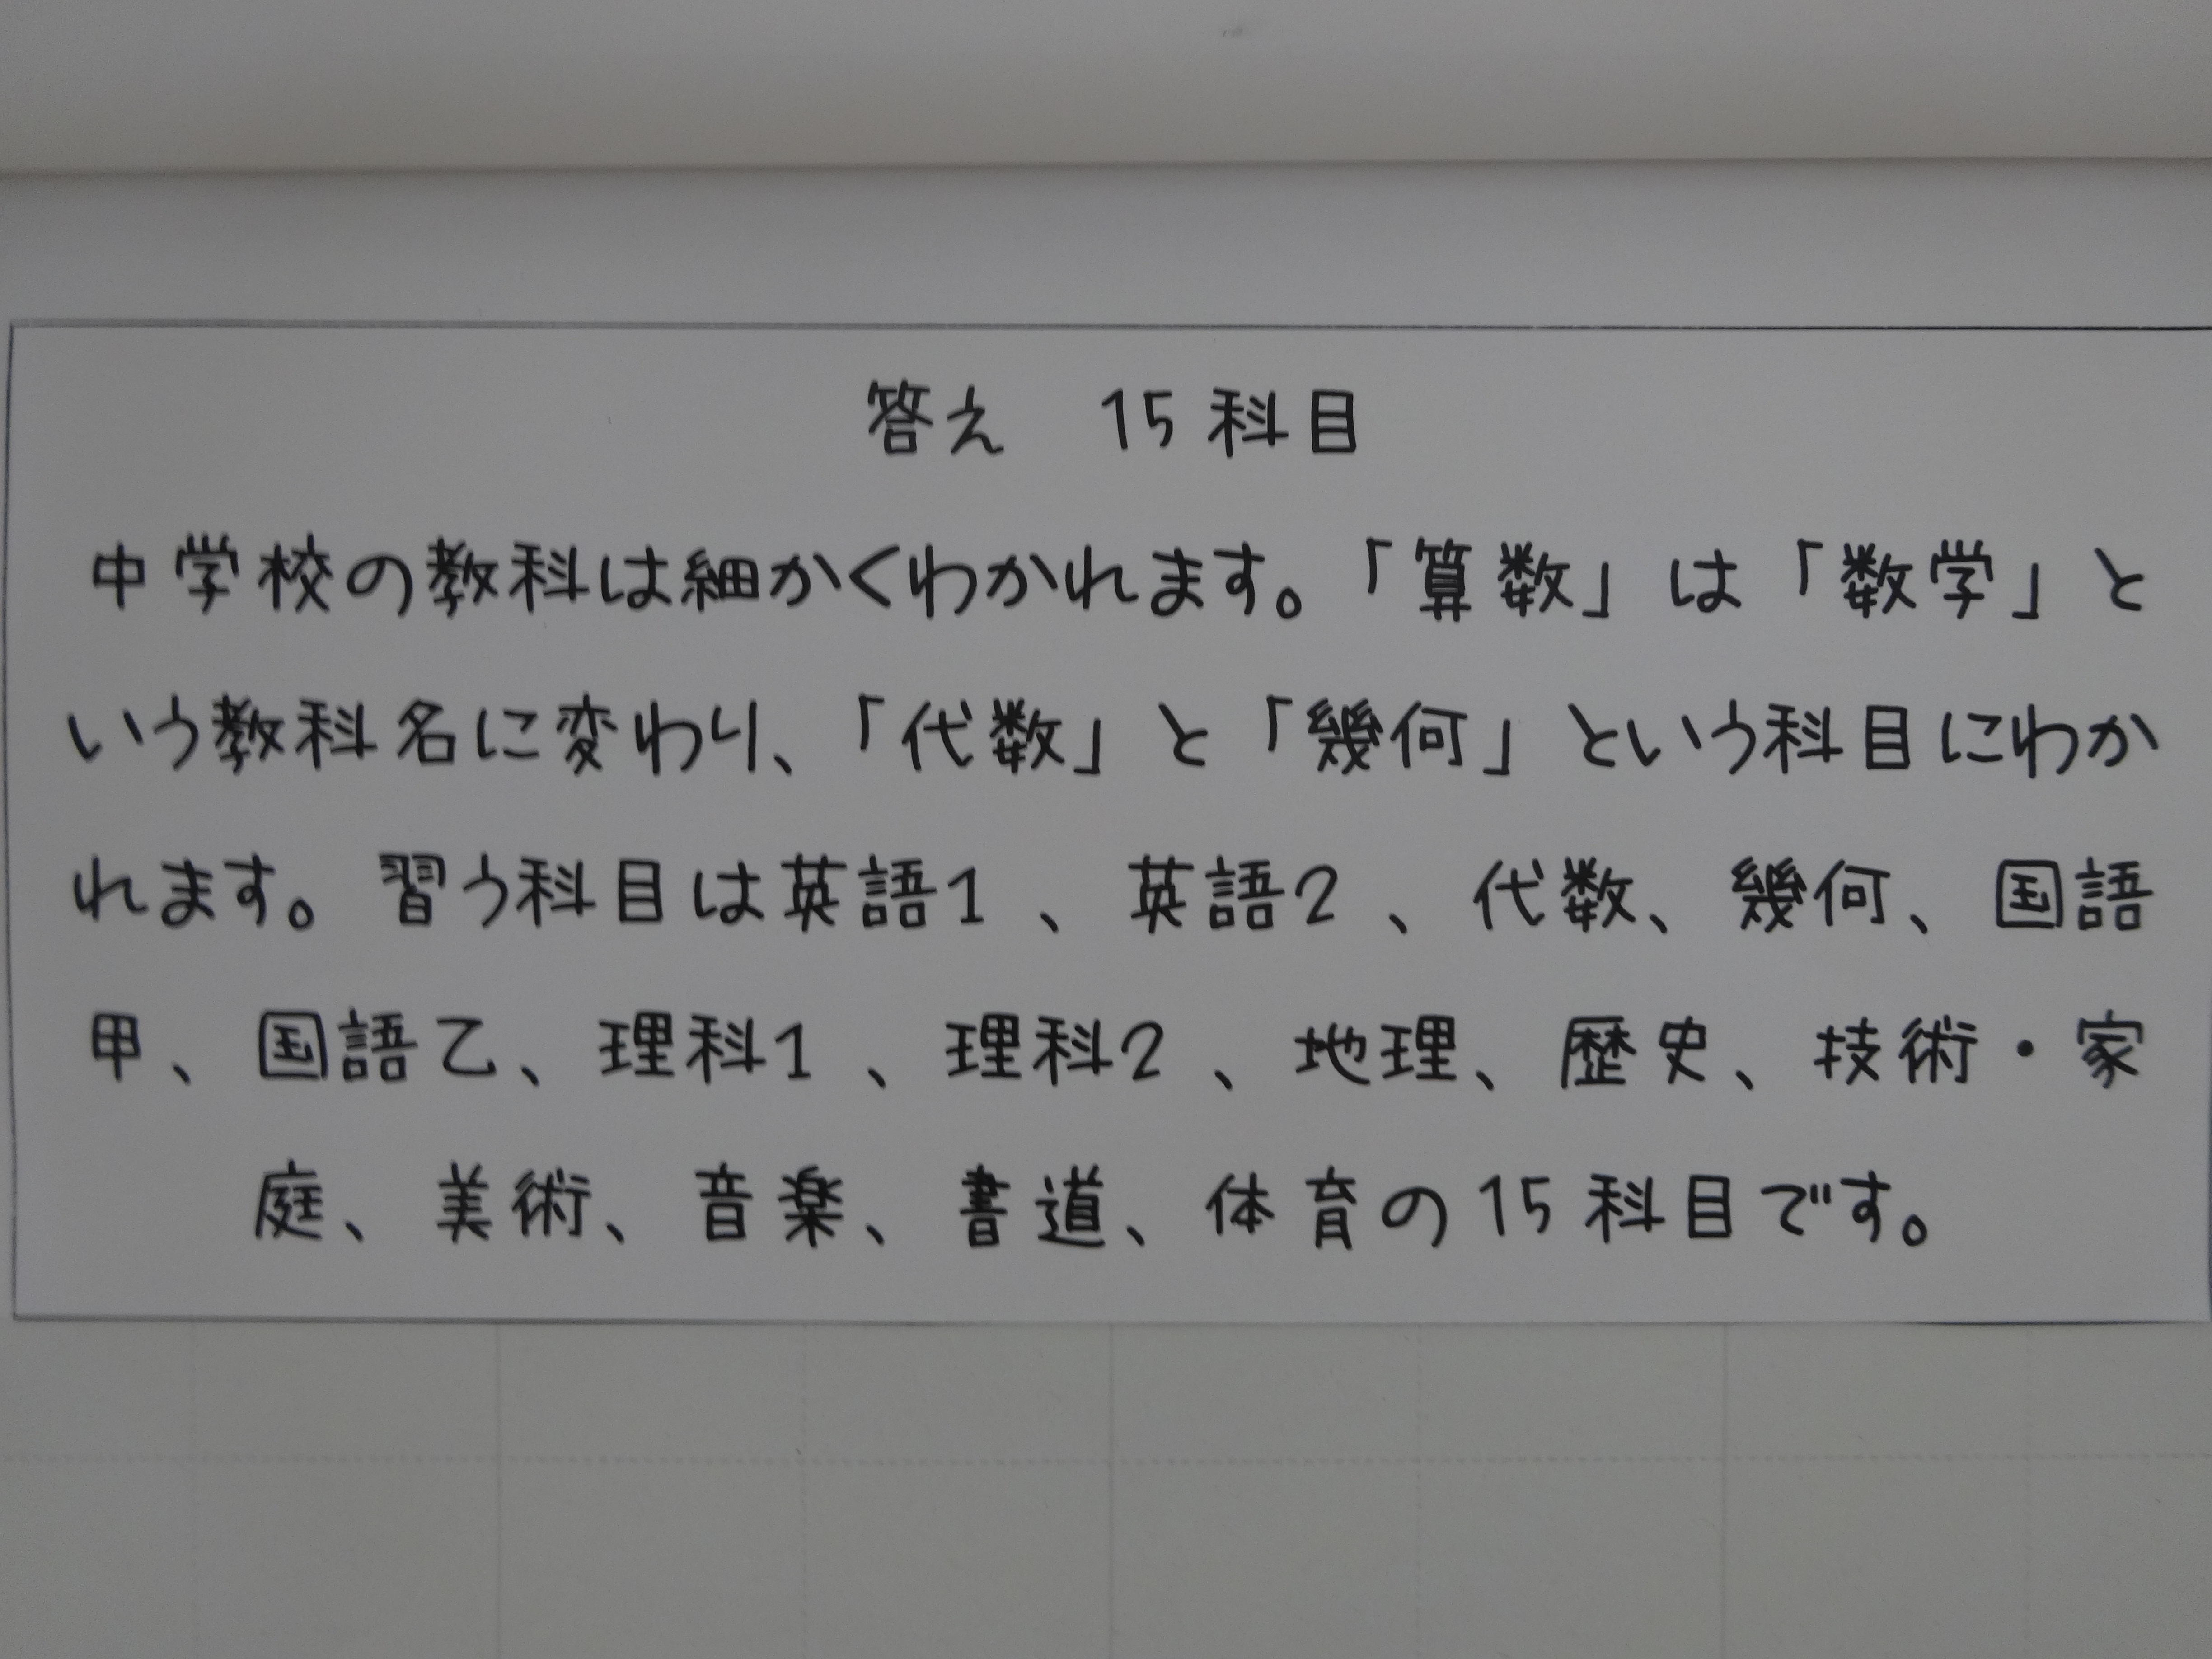 答え　15科目
中学校の教科は細かくわかれます。「算数」は「数学」と
いう教科名に変わり、「代数」と「幾何」という科目にわか
れます。習う科目は英語1、英語2、代数、幾何、国語
甲、国語乙、理科1、理科2、地理、歴史、技術・家
庭、美術、音楽、書道、体育の15科目です。